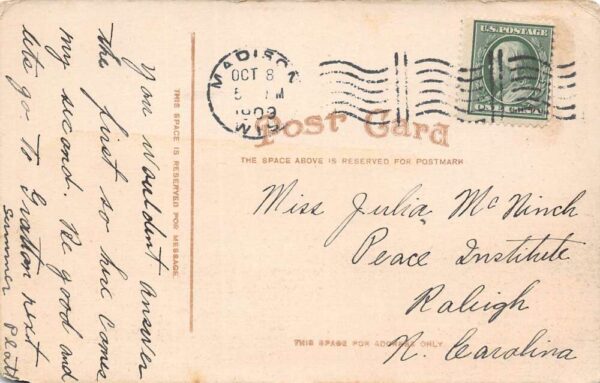 You wouldn't answer
the first so here comes
my second. Be good and
lets go to Gratton next
summer Platt
THIS SPACE IS RESERVED FOR MESSAGE
MADISON
OCT 8
5 M
1909
WIS
Post Card
THE SPACE ABOVE IS RESERVED FOR POSTMARK
U.S. POSTAGE
Miss Julia McNinch
Peace Institute
Raleigh
N. Carolina
THIS SPACE FOR ADDRESS ONLY